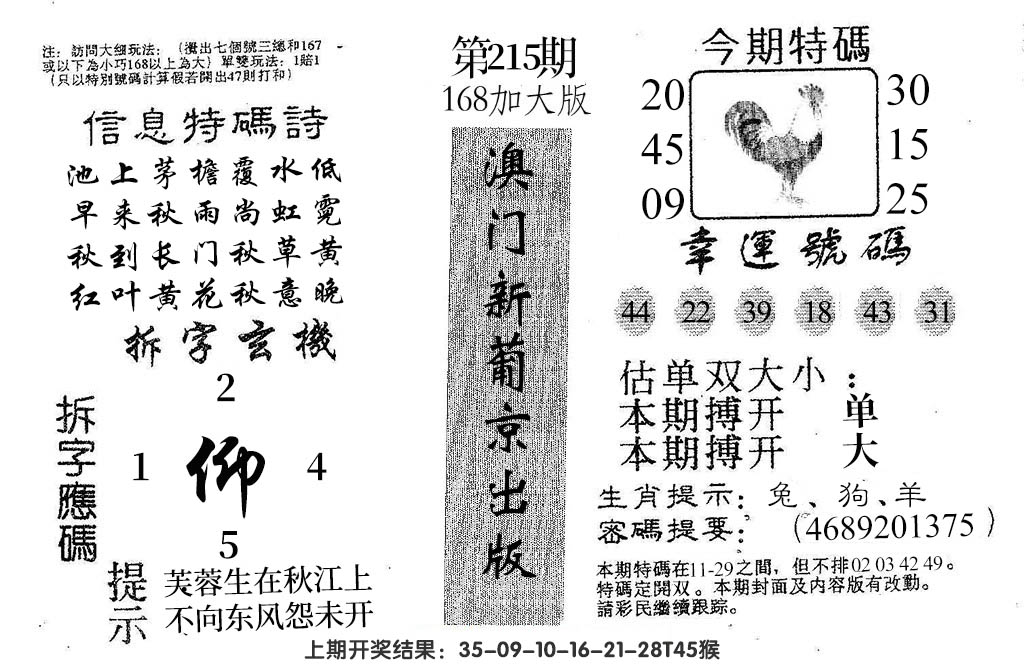 注：訪問大细玩法：(攪出七個號三總和167
或以下為小巧168以上為大）單雙玩法：1賠1
（只以特別號碼計算假若開出47則打和）
信息特碼詩
池上茅檐覆水低
早来秋雨尚虹霓
秋到长门秋草黄
红叶黄花秋意晚
拆字玄機
2
1 仰 4
5
拆字應碼
提示
芙蓉生在秋江上
不向东风怨未开
第215期
168加大版
澳门新葡京出版
今期特碼
20 30
45 15
09 25
幸運號碼
44 22 39 18 43 31
估单双大小：
本期搏开 单
本期搏开 大
生肖提示：兔、狗、羊
密碼提要：（4689201375）
本期特碼在11-29之間，但不排02 03 42 49。
特碼定開双。本期封面及内容版有改動。
請彩民繼續跟踪。
上期开奖结果：35-09-10-16-21-28T45猴